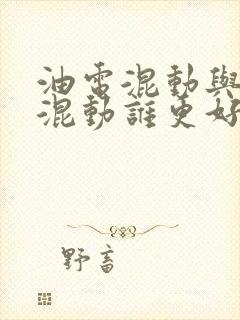 油電混動與
混動誰更好
野畜